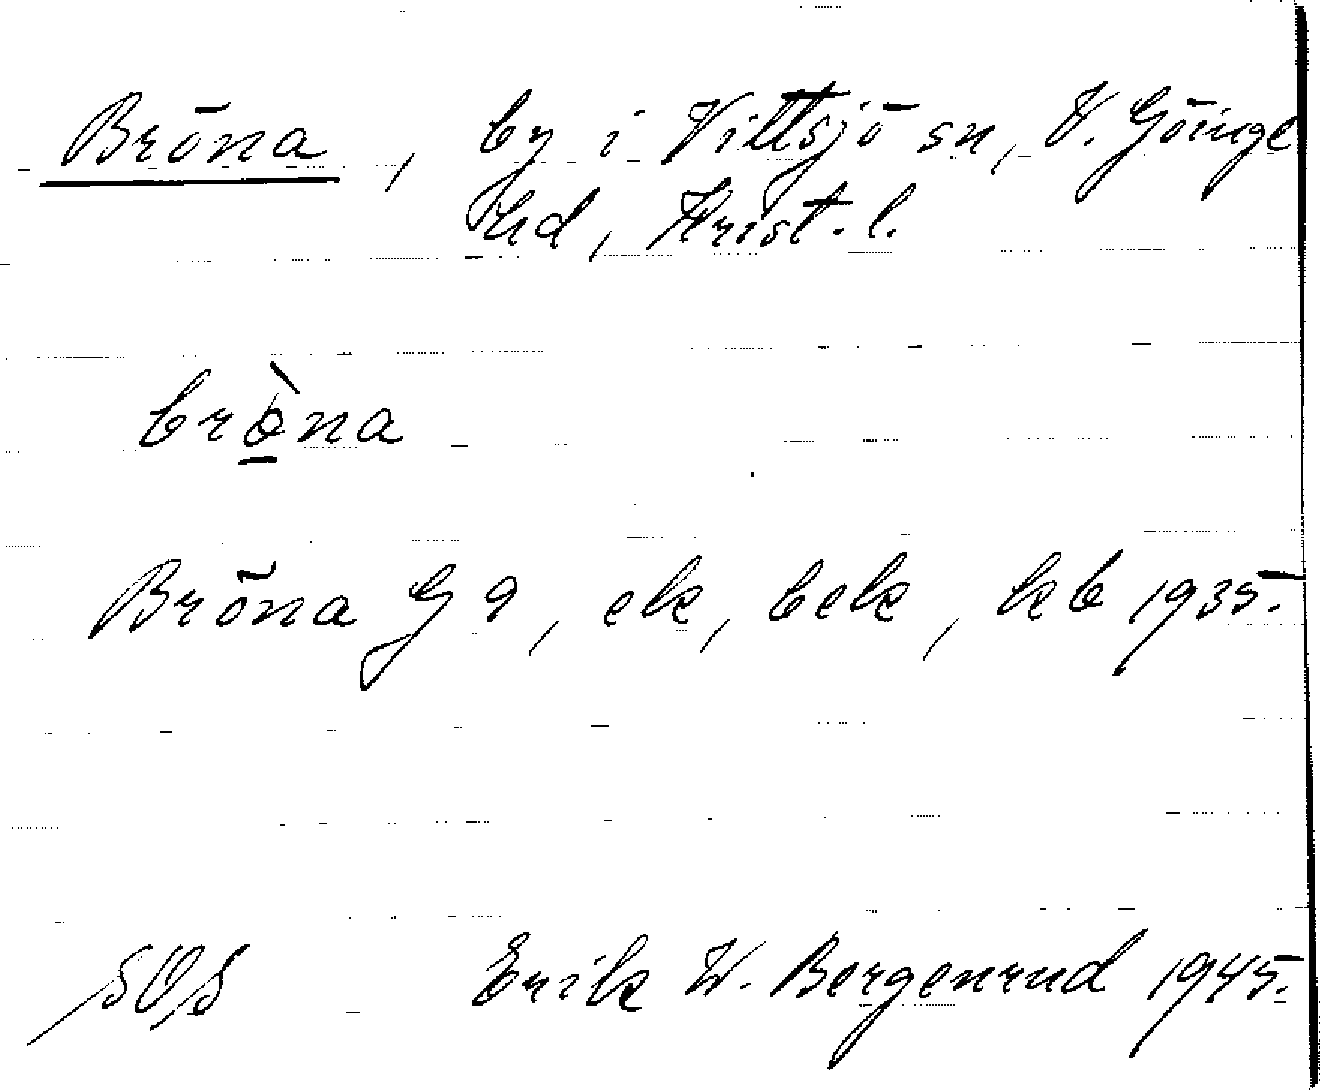 Bröna, by i Vittsjö sn, V. Göinge
hd, Krist. l.
brö̀na
Bröna G 9, ek, bek, kb 1935.
SOS Erik W. Bergenrud 1945.